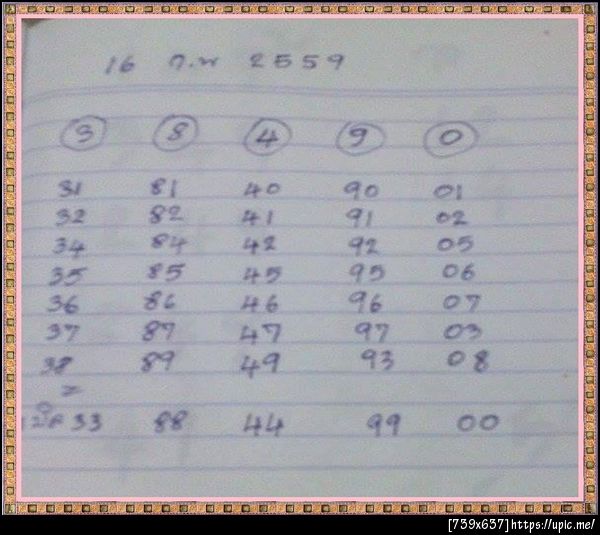 16 ก.พ 2559
3 8 4 9 0
31 81 40 90 01
32 82 41 91 02
34 84 42 92 05
35 85 45 95 06
36 86 46 96 07
37 87 47 97 03
38 89 49 93 08
33 88 44 99 00
[739x637]https://upic.me/